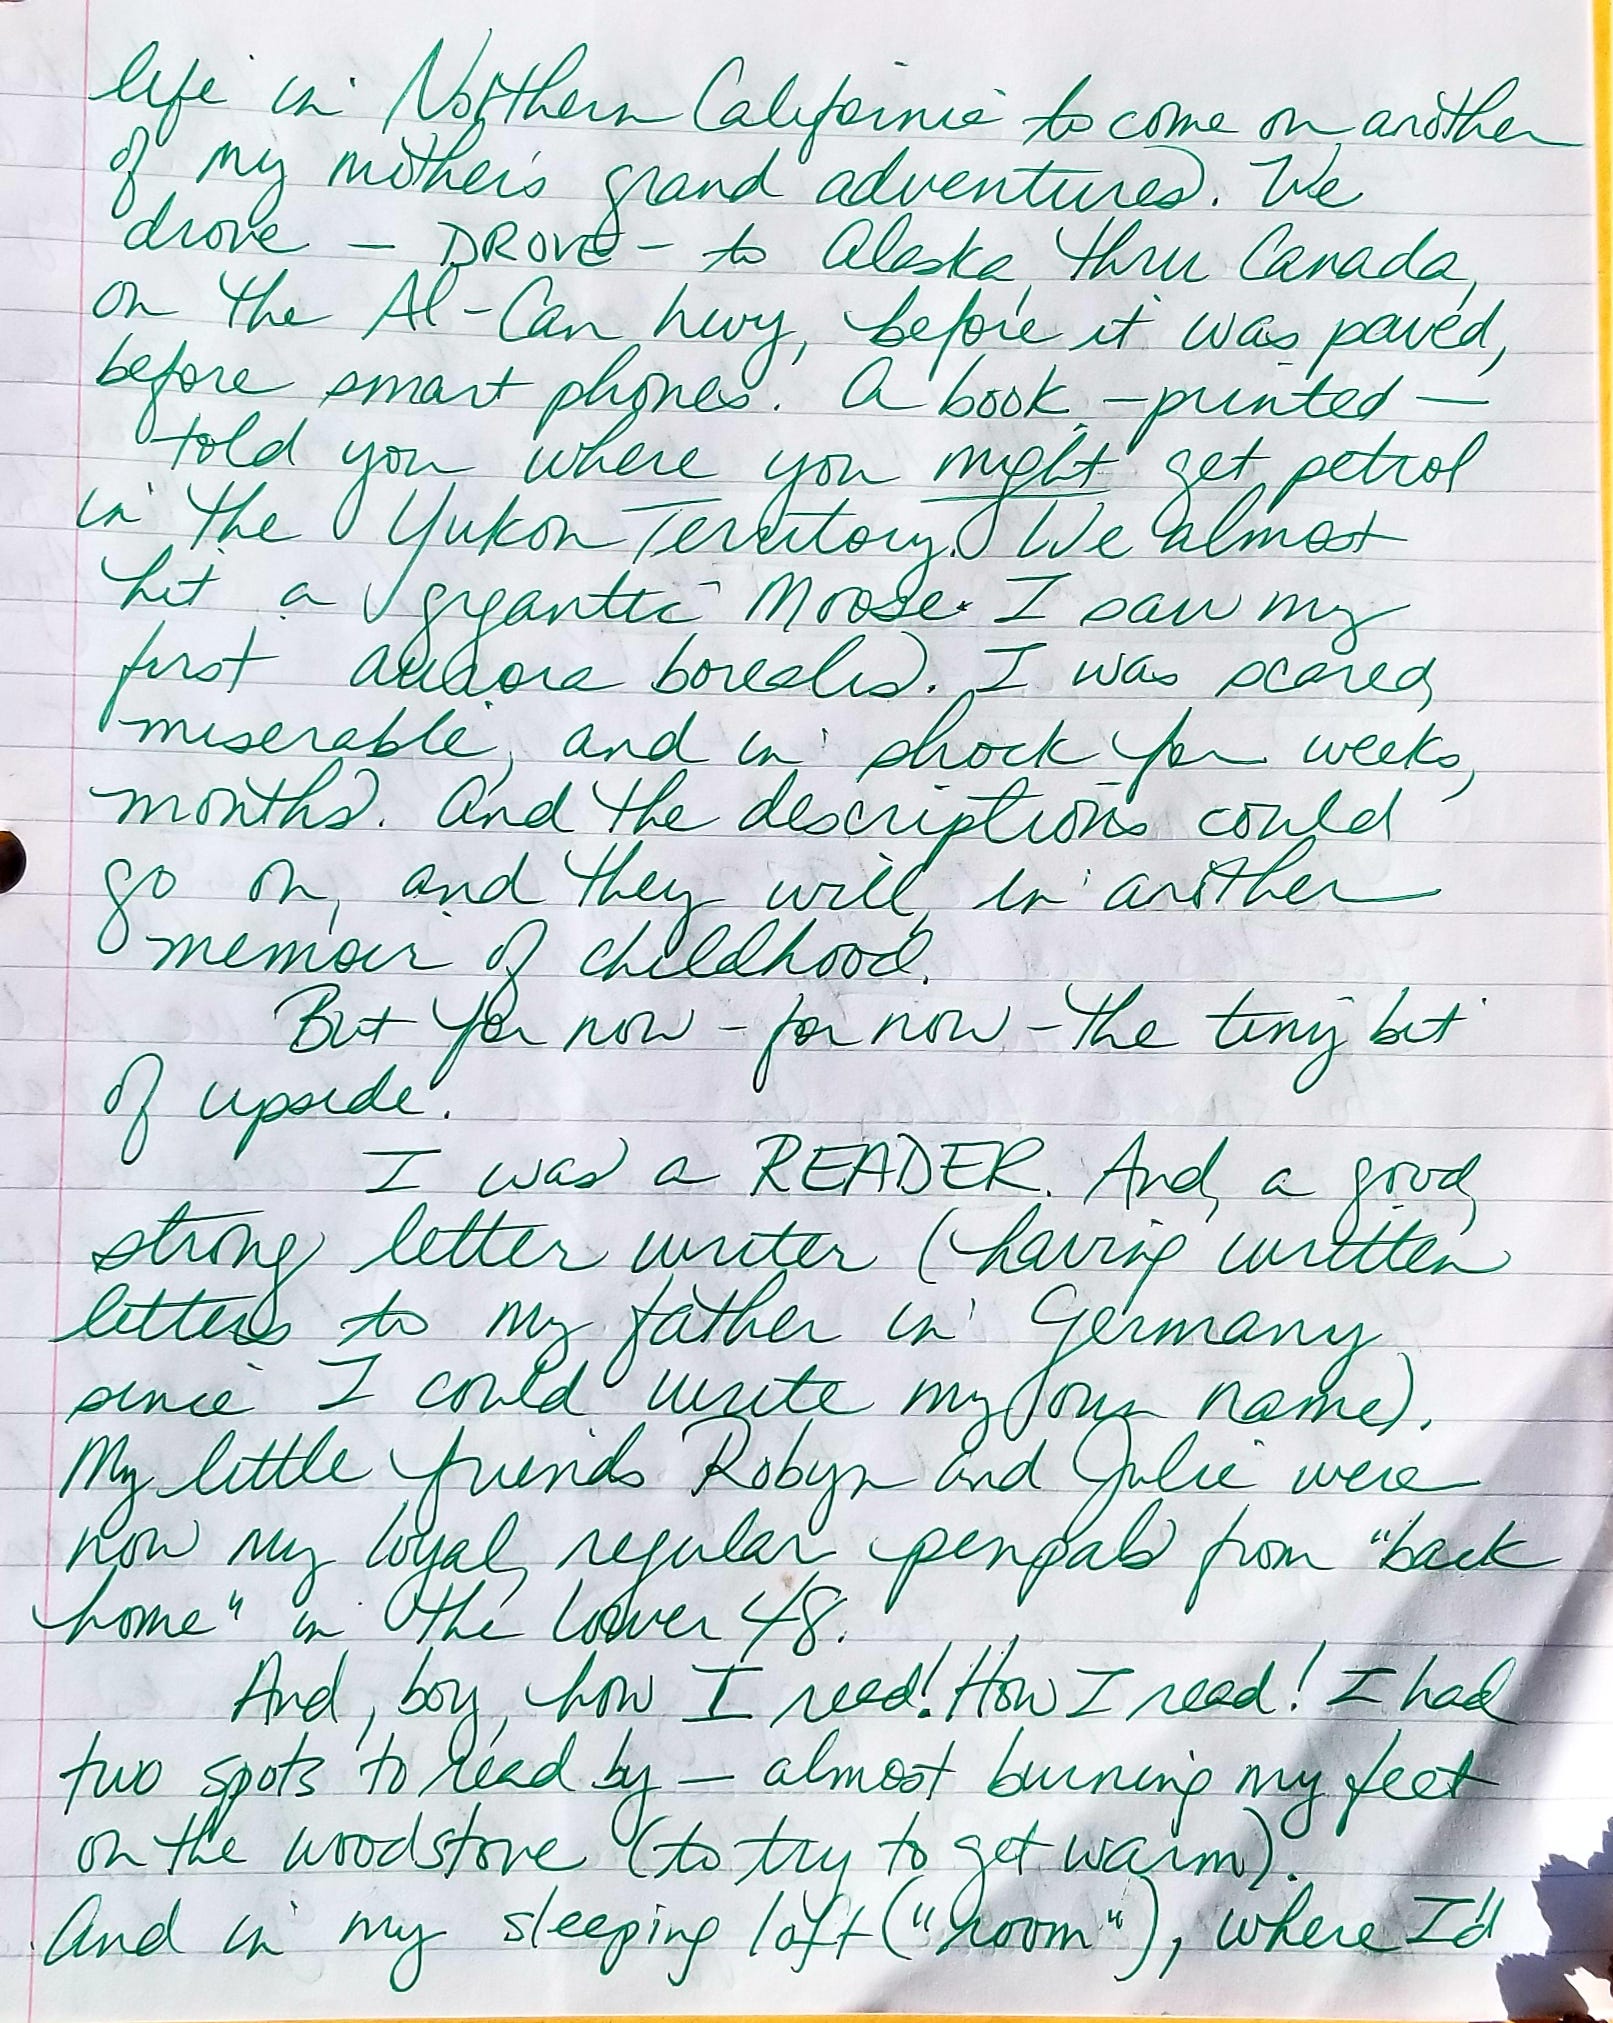 life in Northern California to come on another
of my mother's grand adventures. We
drove – DROVE – to Alaska, thru Canada,
on the Al-Can hwy, before it was paved,
before smart phones. A book – printed –
told you where you might get petrol
in the Yukon Territory. We almost
hit a gigantic Moose. I saw my
first aurora borealis. I was scared,
miserable, and in shock for weeks,
months. And the descriptions could
go on, and they will, in another
memoir of childhood.
But for now – for now – the tiny bit
of upside.
I was a READER. And, a good,
strong letter writer (having written
letters to my father in Germany
since I could write my own name).
My little friends Robyn and Julie were
now my loyal, regular penpals from "back
home" in the lower 48.
And, boy, how I read! How I read! I had
two spots to read by – almost burning my feet
on the woodstove (to try to get warm).
And in my sleeping loft ("room"), where I'd